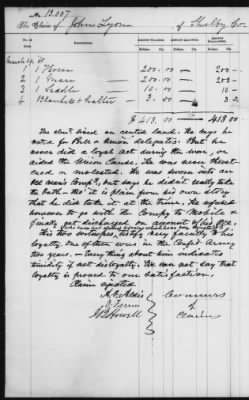 No. 13,007
The Claim of John Lyon of Shelby Co.
1 1 Horse 200.00 — 200 —
2 1 Mare 200.00 — 200 —
3 1 Saddle 10 — 10 —
4 Blankets & halter 3.00 3.
$413.00 — 413 00
The clmt lived on rented land. He says he
voted for Bell & Union delegates. But he
never did a loyal act during the war, or
aided the Union Cause. He was never threat-
ened or molested. He was sworn into an
old man's Comp'y, but says he didn't really take
the oath — tho' it is plain from his own story
that he did take it at the time. He refused
however to go with the Compy to Mobile &
finally got discharged on account of his age.
His two witnesses, testify very faintly to his
loyalty. One of them was in the Conf'd Army
two years. — Everything about him indicates
timidity if not disloyalty. We can not say that
loyalty is proved to our satisfaction.
Claim rejected
A. O. Aldis
O. Ferriss
J. B. Howell
Commrs
of
Claims